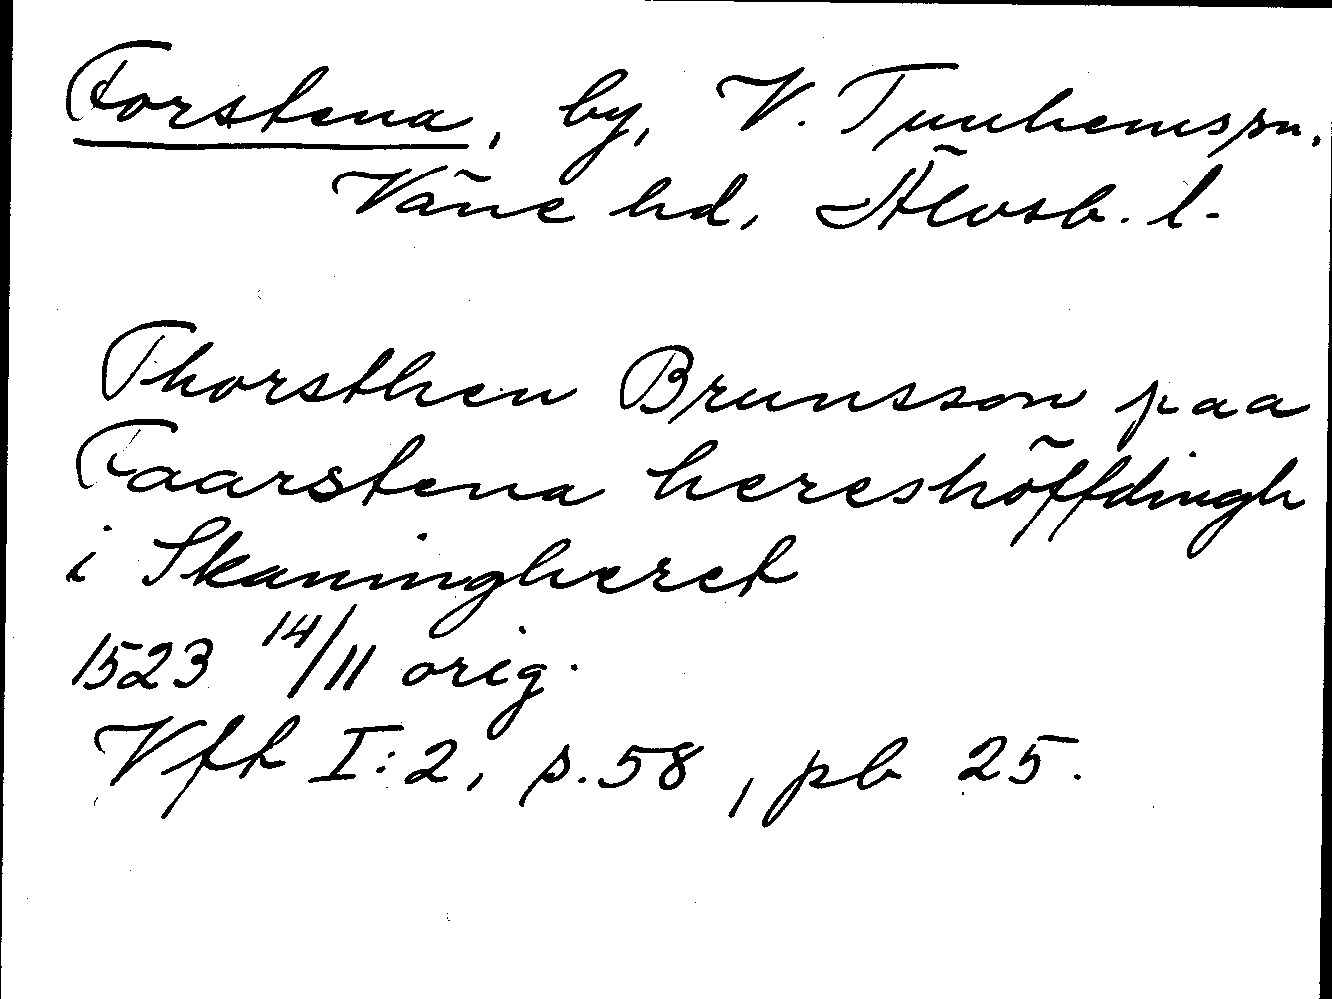 Forstena, by, V. Tunhemssn.
Väne hd, Älvsb. l.
Thorsthen Brunsson paa
Faarstena hereshöffdingh
i Skaningheret
1523 14/11 orig.
Vfh I:2, s.58, pb 25.